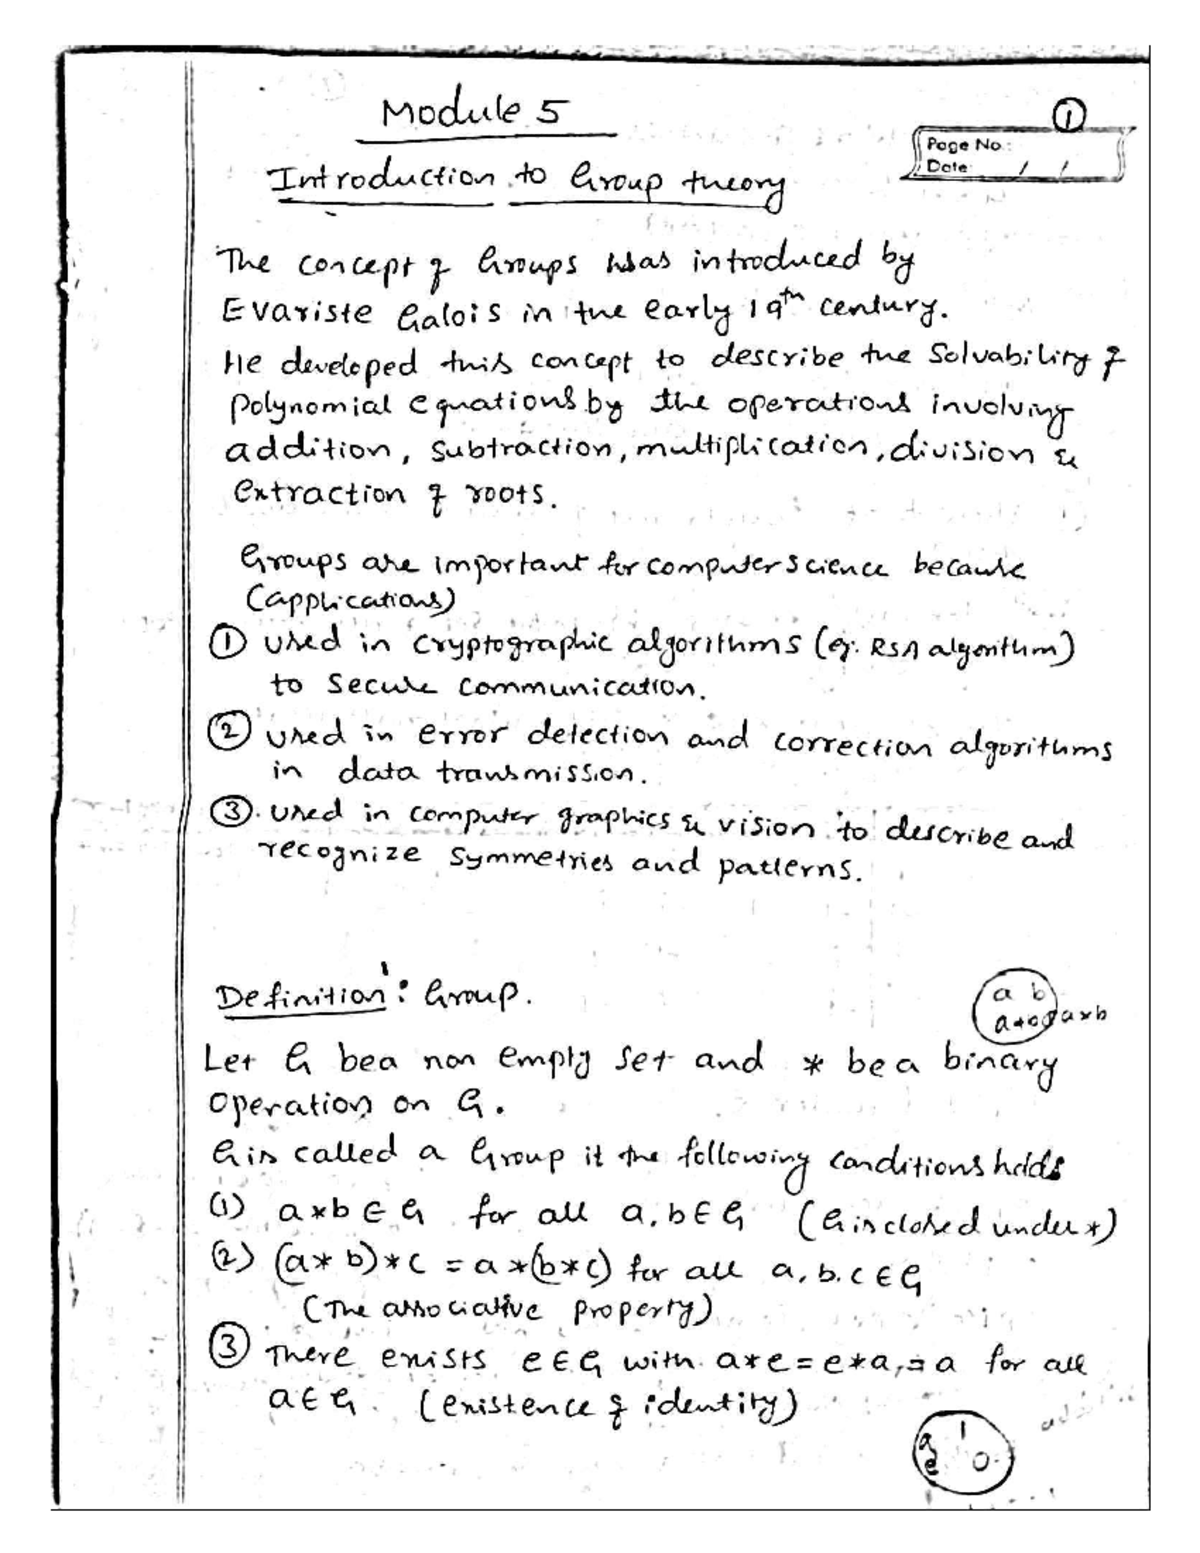 Module 5
①
Page No.:
Date: / /
Introduction to Group theory
The concept of Groups was introduced by
Evariste Galois in the early 19th century.
He developed this concept to describe the Solvability of
polynomial equations by the operations involving
addition, subtraction, multiplication, division &
extraction of roots.
Groups are important for computer science because
(applications)
① used in cryptographic algorithms (eg. RSA algorithm)
to secure communication.
② used in error detection and correction algorithms
in data transmission.
③. used in computer graphics & vision to describe and
recognize symmetries and patterns.
Definition: Group.
a b
a*b
a*b
Let G be a non empty set and * be a binary
operation on G.
G is called a Group if the following conditions holds
(1) a*b ∈ G for all a, b ∈ G (G is closed under *)
(2) (a* b)*c = a*(b*c) for all a, b, c ∈ G
(The associative property)
③ There exists e ∈ G with a*e = e*a = a for all
a ∈ G. (existence of identity)
a 1
e 0